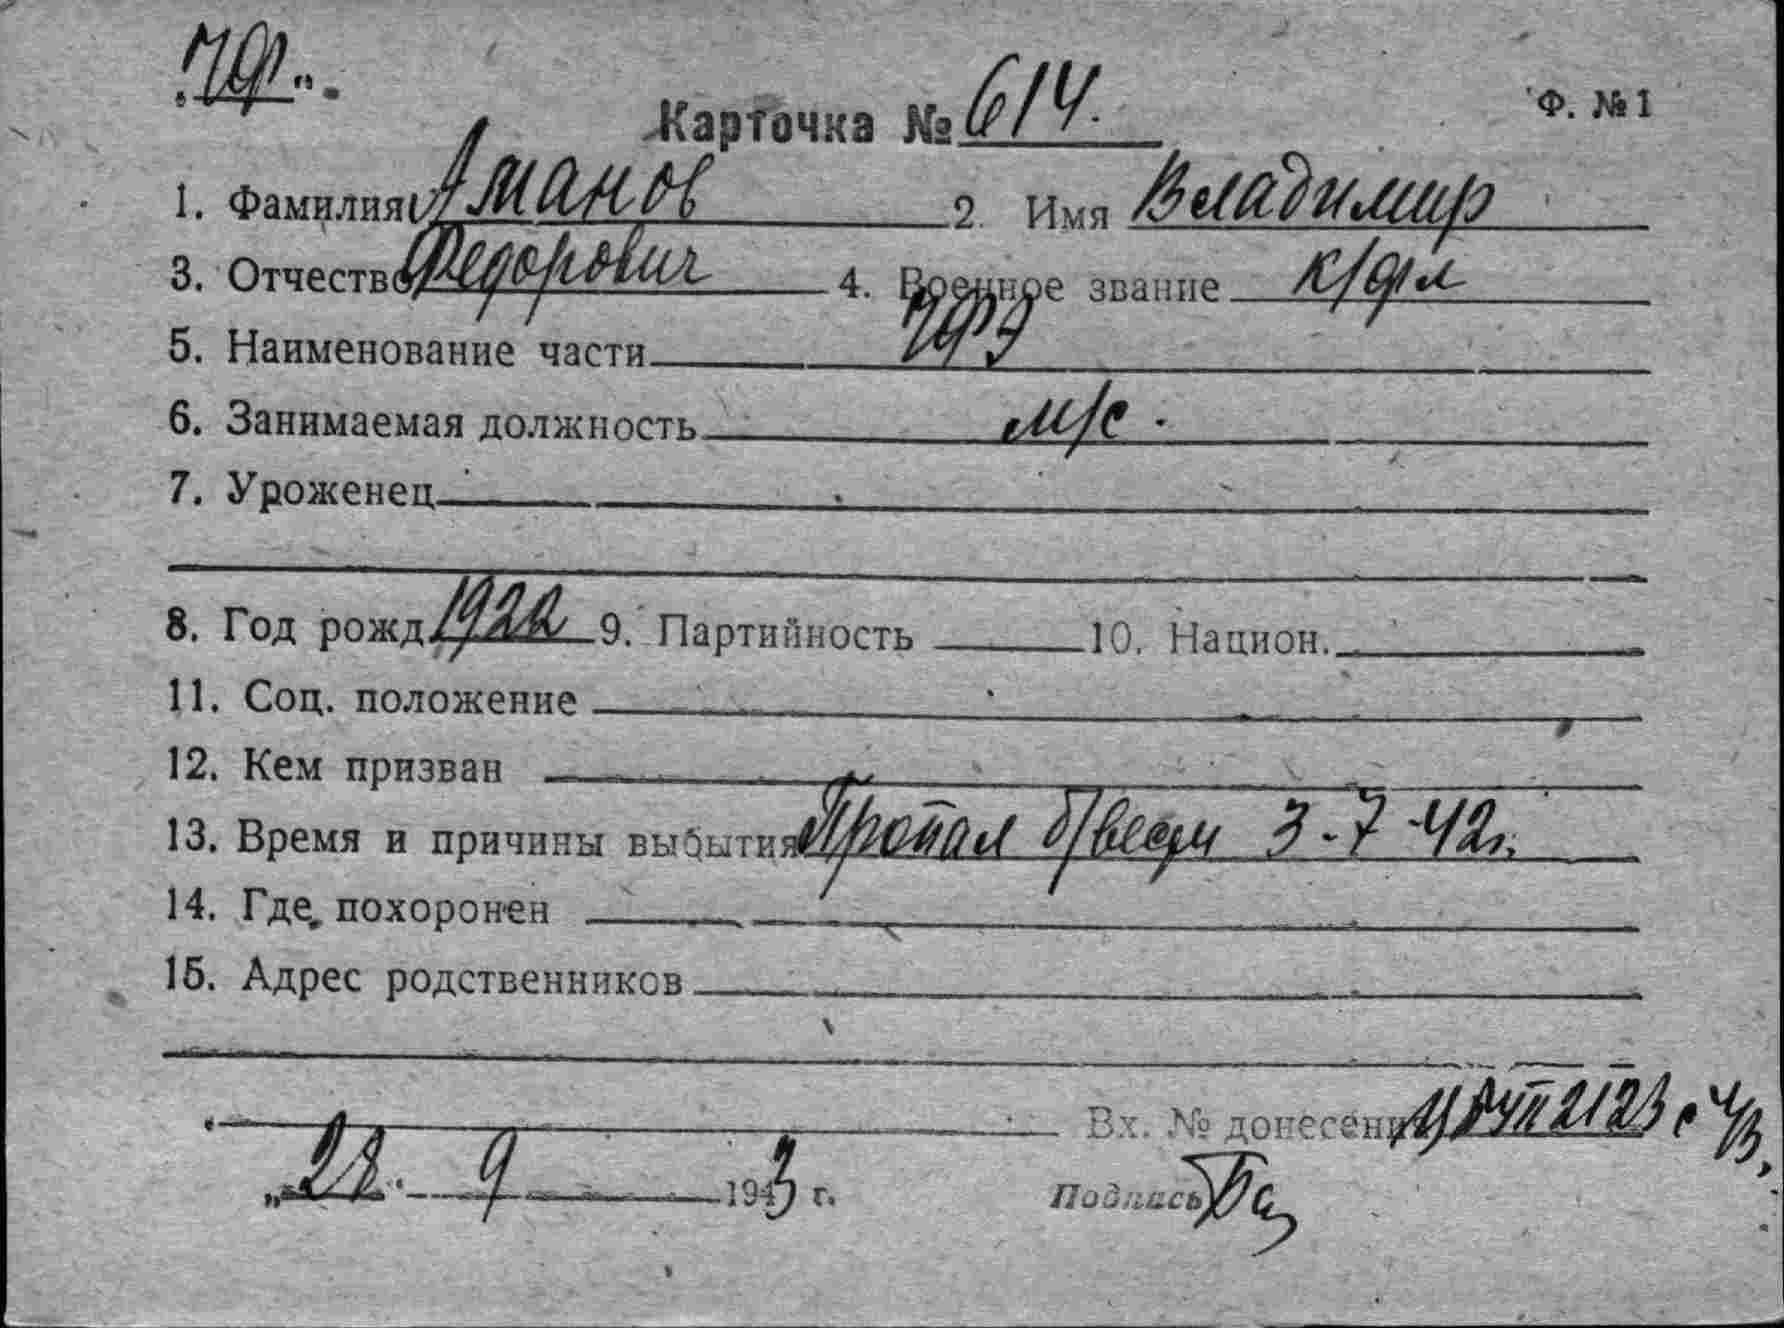 Ф. № 1
Карточка № 614.
1. Фамилия Аманов 2. Имя Владимир
3. Отчество Федорович 4. Военное звание к/фл
5. Наименование части ЧФ
6. Занимаемая должность м/с.
7. Уроженец
8. Год рожд. 1922 9. Партийность 10. Национ.
11. Соц. положение
12. Кем призван
13. Время и причины выбытия Пропал б/вести 3-7-42г.
14. Где похоронен
15. Адрес родственников
Вх. № донесени 2123
9 1943 г. Подпись